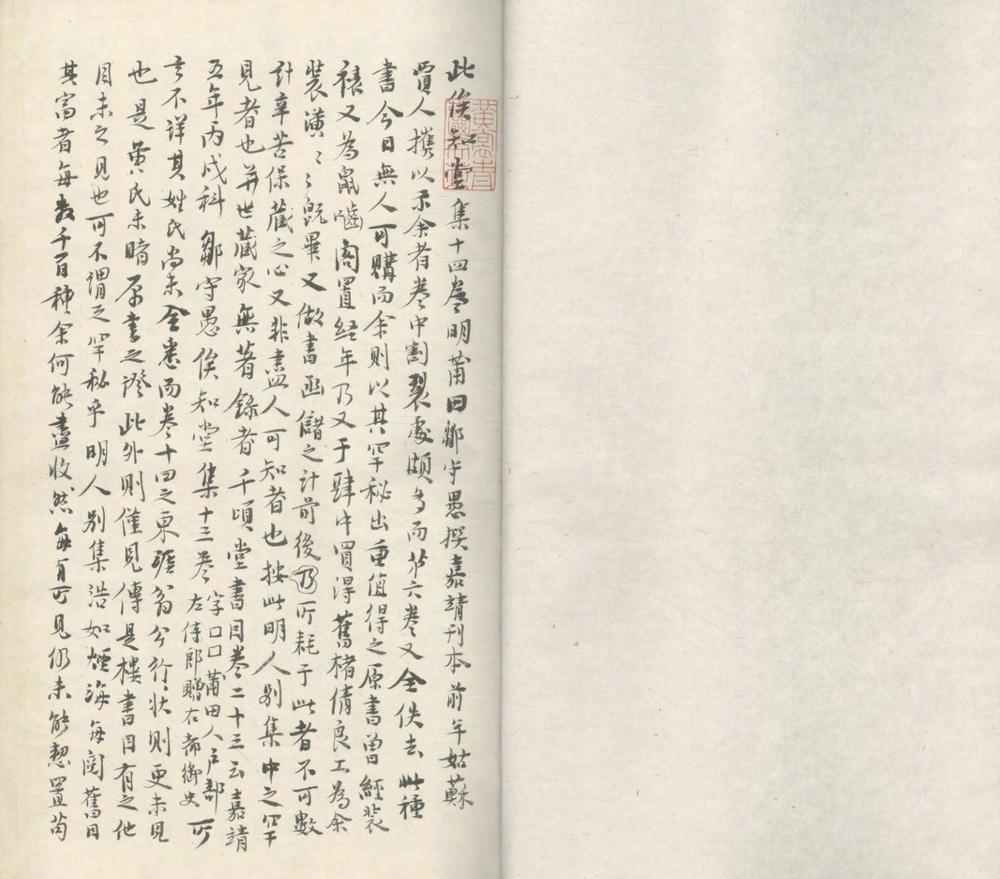 此俟知堂集十四卷明莆田鄒守愚撰嘉靖刊本前年姑蘇
賈人攜以示余者卷中割裂處頗多而第六卷又全佚去此種
書今日無人可購而余則以其罕秘出重值得之原書曾經裝
裱又為鼠嚙閣置經年乃又于肆中買得舊楮倩良工為余
裝潢〻〻既畢又做書函儲之計前後乃所耗于此者不可數
計辛苦保藏之心又非盡人可知者也按此明人別集中之罕
見者也並世藏家無著錄者千頃堂書目卷二十三云嘉靖
五年丙戌科鄒守愚俟知堂集十三卷字口口莆田人戶部左侍郎贈右都御史所
言不詳其姓氏尚未全悉而卷十四之東張翁公行狀則更未見
也是黃氏未睹原書之證此外則僅見傳是樓書目有之他
目未之見也可不謂之罕秘乎明人別集浩如煙海每閱舊目
其富者每數千百種余何能盡收然每有可見仍未能恝置苟